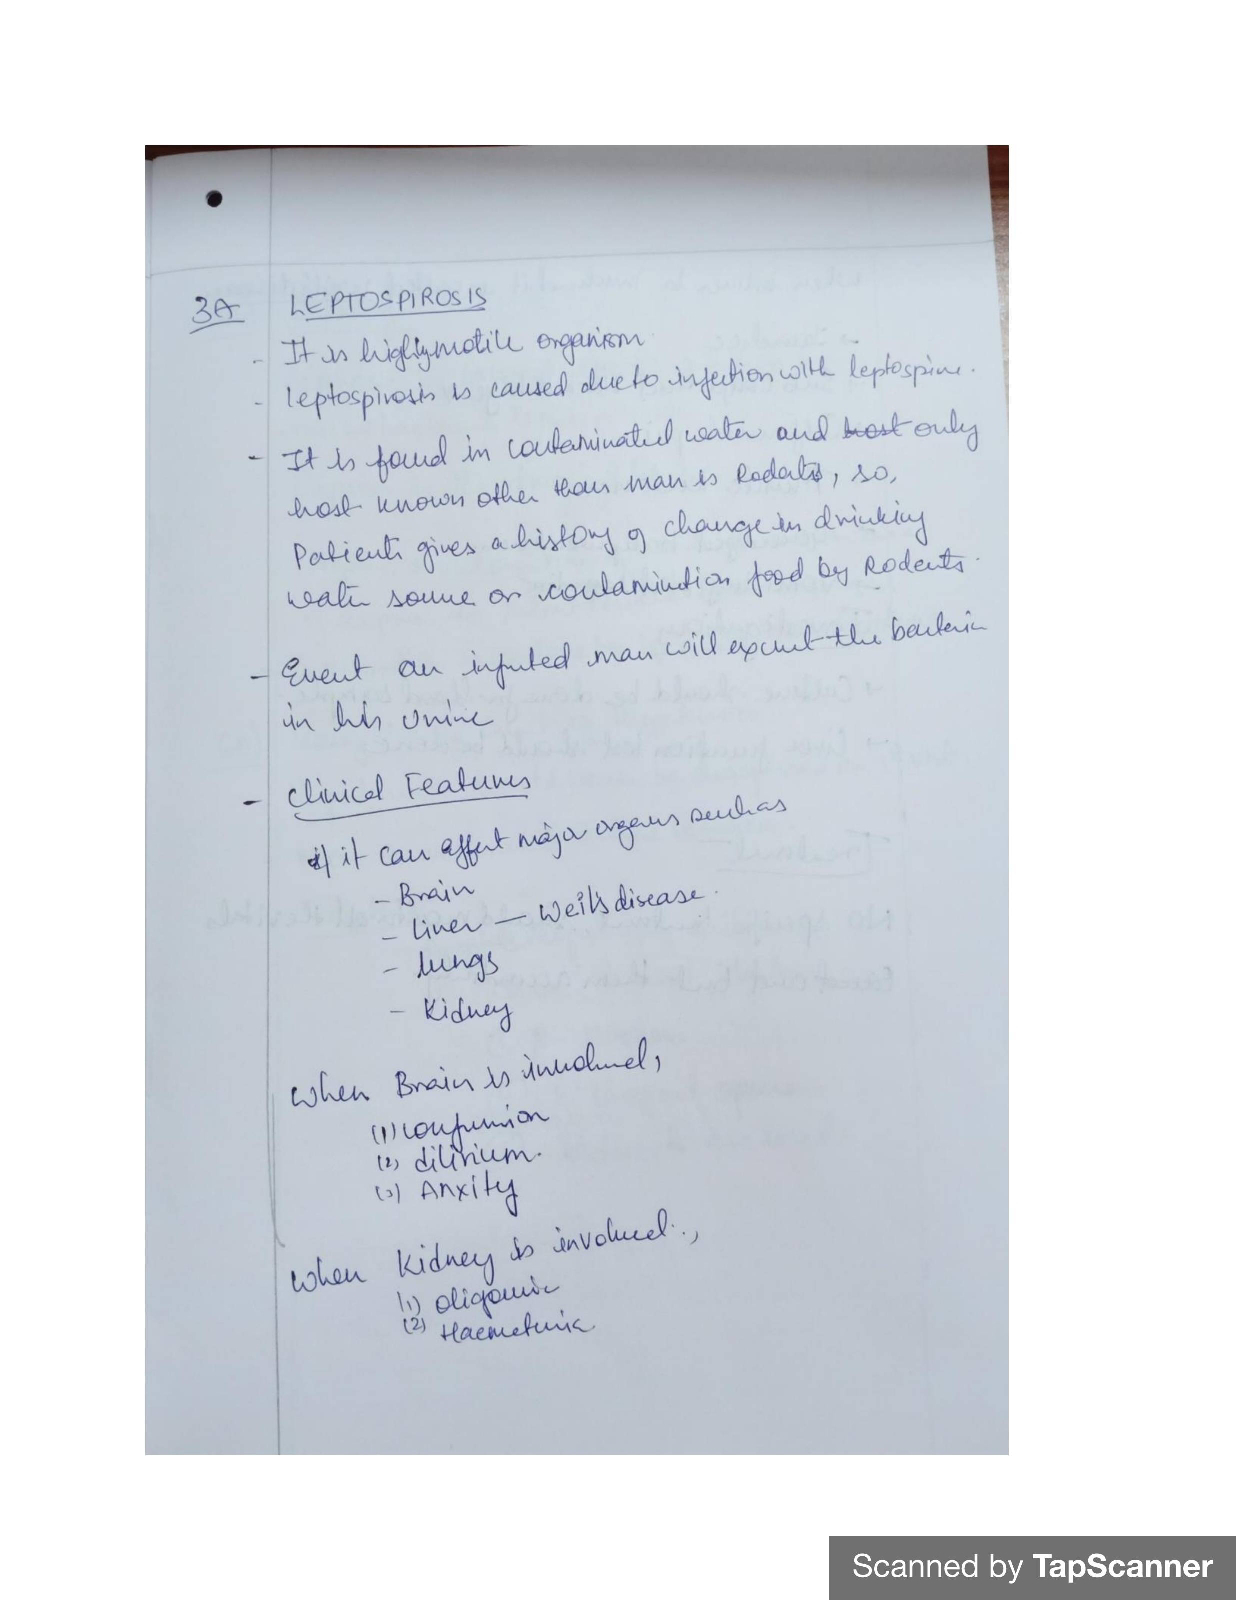 3A LEPTOSPIROSIS
- It is highly motile organism
- leptospirosis is caused due to infection with leptospire.
- It is found in contaminated water and host only
host known other than man is Rodents, so,
Patients gives a history of change in drinking
water source or contamination food by Rodents.
- Event an infected man will excret the bacteria
in his urine
- Clinical Features
i) it can affect major organs such as
- Brain
- Liver — Weil's disease.
- lungs
- Kidney
When Brain is involved,
(1) confusion
(2) dilirium.
(3) Anxity
When Kidney is involved.,
(1) oligouria
(2) Haemeturia
Scanned by TapScanner